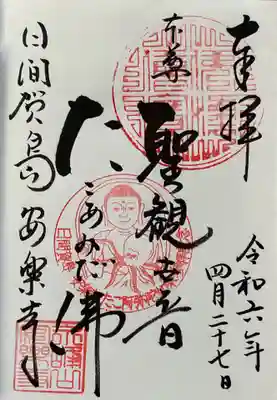 奉拝
令和六年
四月二十七日
本尊
聖観世音
たこあみだ佛
日間賀島 安楽寺